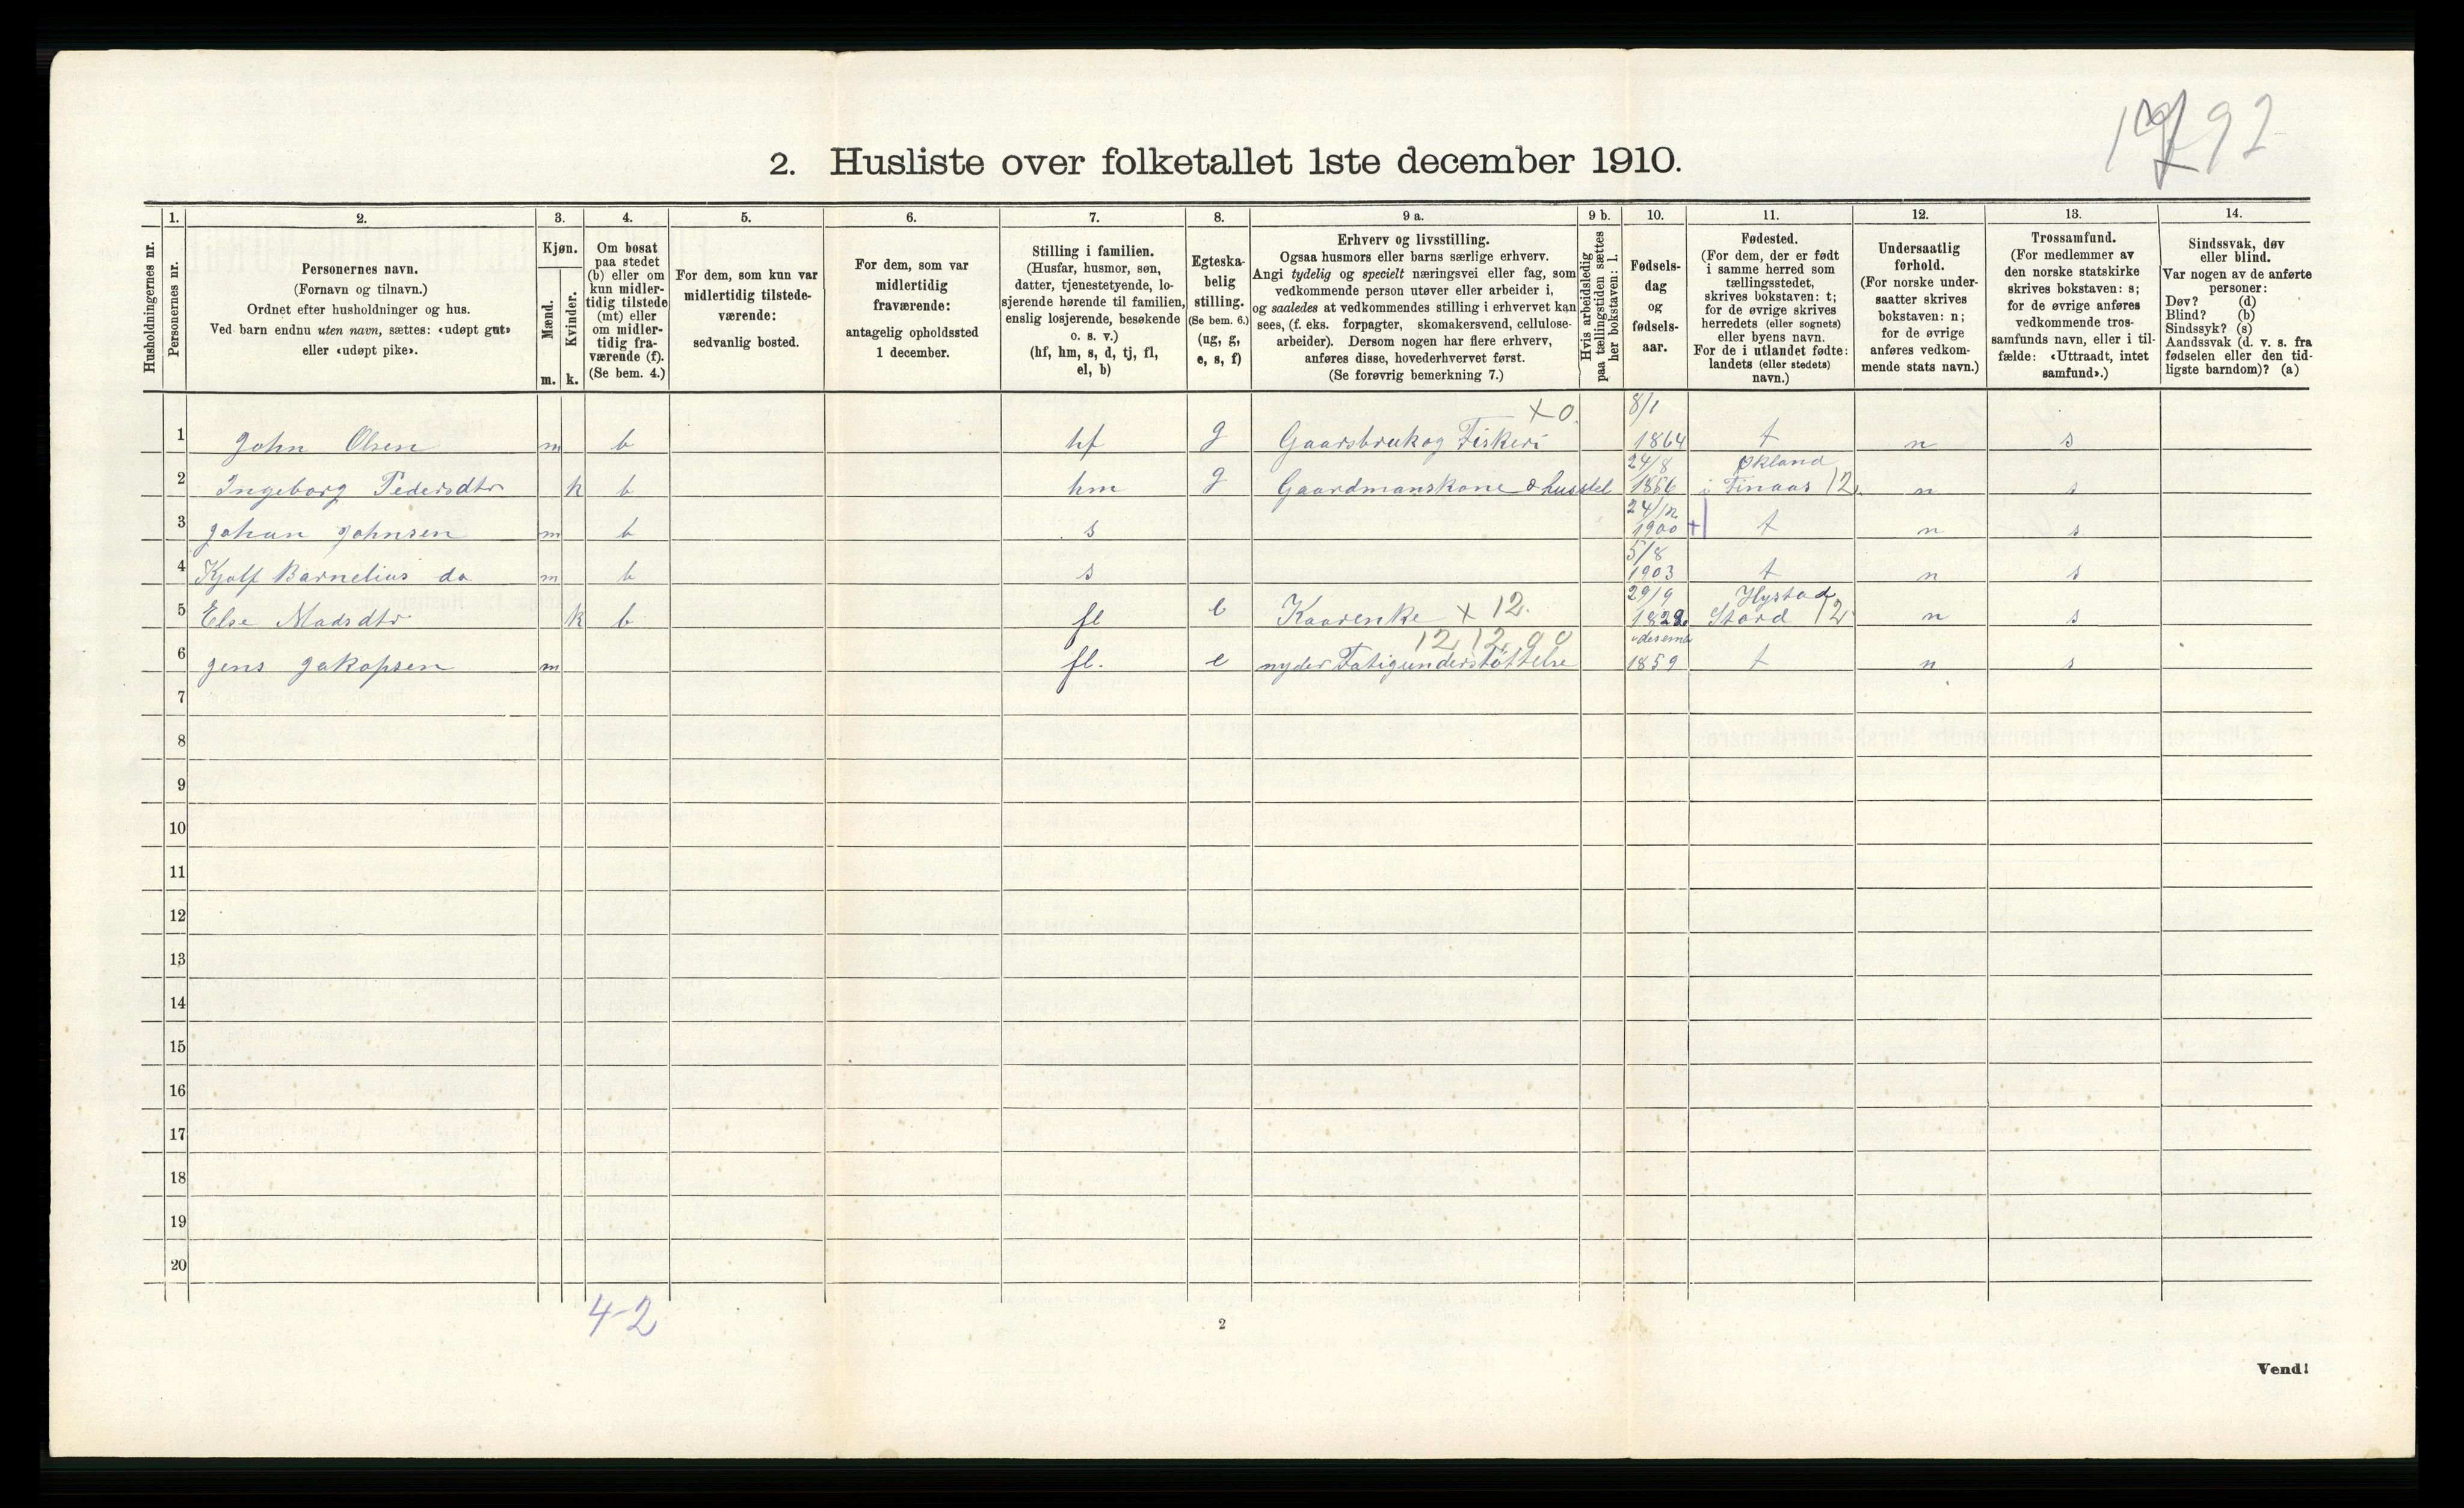 92
2. Husliste over folketallet 1ste december 1910.
1. 2. 3. 4. 5. 6. 7. 8. 9 a. 9 b. 10. 11. 12. 13. 14.
Husholdningernes nr.
Personernes nr.
Personernes navn.
(Fornavn og tilnavn.)
Ordnet efter husholdninger og hus.
Ved barn endnu uten navn, sættes: «udøpt gut»
eller «udøpt pike».
Kjøn.
Mænd.
Kvinder.
m. k.
Om bosat
paa stedet
(b) eller om
kun midler-
tidig tilstede
(mt) eller
om midler-
tidig fra-
værende (f).
(Se bem. 4.)
For dem, som kun var
midlertidig tilstede-
værende:
sedvanlig bosted.
For dem, som var
midlertidig
fraværende:
antagelig opholdssted
1 december.
Stilling i familien.
(Husfar, husmor, søn,
datter, tjenestetyende, lo-
sjerende hørende til familien,
enslig losjerende, besøkende
o. s. v.)
(hf, hm, s, d, tj, fl,
el, b)
Egteska-
belig
stilling.
(Se bem. 6.)
(ug, g,
e, s, f)
Erhverv og livsstilling.
Ogsaa husmors eller barns særlige erhverv.
Angi tydelig og specielt næringsvei eller fag, som
vedkommende person utøver eller arbeider i,
og saaledes at vedkommendes stilling i erhvervet kan
sees, (f. eks. forpagter, skomakersvend, cellulose-
arbeider). Dersom nogen har flere erhverv,
anføres disse, hovederhvervet først.
(Se forøvrig bemerkning 7.)
Hvis arbeidsledig
paa tællingstiden sættes
her bokstaven: l.
Fødsels-
dag
og
fødsels-
aar.
Fødested.
(For dem, der er født
i samme herred som
tællingsstedet,
skrives bokstaven: t;
for de øvrige skrives
herredets (eller sognets)
eller byens navn.
For de i utlandet fødte:
landets (eller stedets)
navn.)
Undersaatlig
forhold.
(For norske under-
saatter skrives
bokstaven: n;
for de øvrige
anføres vedkom-
mende stats navn.)
Trossamfund.
(For medlemmer av
den norske statskirke
skrives bokstaven: s;
for de øvrige anføres
vedkommende tros-
samfunds navn, eller i til-
fælde: «Uttraadt, intet
samfund».)
Sindssvak, døv
eller blind.
Var nogen av de anførte
personer:
Døv? (d)
Blind? (b)
Sindssyk? (s)
Aandssvak (d. v. s. fra
fødselen eller den tid-
ligste barndom)? (a)
x 0. 8/1
1 John Olsen m b hf g Gaarsbruk og Fiskeri 1864 t n s
24/8 Økland
2 Ingeborg Pedersdtr k b hm g Gaardmanskone & husstel 1856 i Finaas 12 n s
24/12
3 Johan Johnsen m b s 1900 t n s
5/8
4 Kjolf Barnelius do m b s 1903 t n s
29/9 Hystad
5 Else Madsdtr k b fl e Kaarenke x 12. 1828 Stord 12 n s
12,12,90 desemb
6 Jens Jakopsen m fl. e nyder Fatigunderstøttelse 1859 t n s
7
8
9
10
11
12
13
14
15
16
17
18
19
20
4-2
2
Vend!